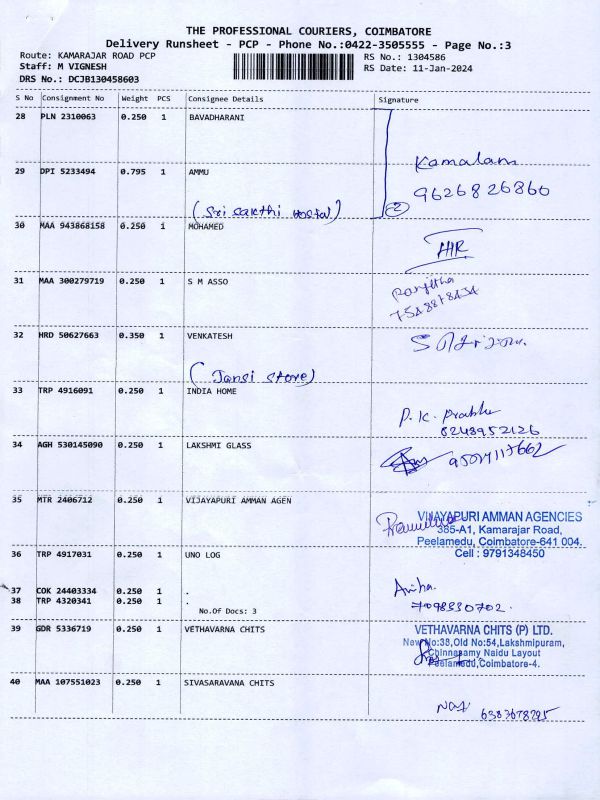 THE PROFESSIONAL COURIERS, COIMBATORE
Delivery Runsheet - PCP - Phone No.:0422-3505555 - Page No.:3
Route: KAMARAJAR ROAD PCP
RS No.: 1304586
Staff: M VIGNESH
RS Date: 11-Jan-2024
DRS No.: DCJB130458603
S No Consignment No Weight PCS Consignee Details Signature
28 PLN 2310063 0.250 1 BAVADHARANI
Kamalam
29 DPI 5233494 0.795 1 AMMU
9626826860
(Sri sakthi Hostel)
2
30 MAA 943868158 0.250 1 MOHAMED
31 MAA 300279719 0.250 1 S M ASSO
Ranjitha
32 HRD 50627663 0.350 1 VENKATESH
(Jansi store)
33 TRP 4916091 0.250 1 INDIA HOME
P.K. Prabhu
34 AGH 530145090 0.250 1 LAKSHMI GLASS
35 MTR 2406712 0.250 1 VIJAYAPURI AMMAN AGEN
VIJAYAPURI AMMAN AGENCIES
385-A1, Kamarajar Road,
Peelamedu, Coimbatore-641 004.
Cell : 9791348450
36 TRP 4917031 0.250 1 UNO LOG
37 COK 24403334 0.250 1 .
38 TRP 4320341 0.250 1 .
No.Of Docs: 3
39 GDR 5336719 0.250 1 VETHAVARNA CHITS
VETHAVARNA CHITS (P) LTD.
New No:38,Old No:54,Lakshmipuram,
Chinnasamy Naidu Layout
Peelamedu,Coimbatore-4.
40 MAA 107551023 0.250 1 SIVASARAVANA CHITS